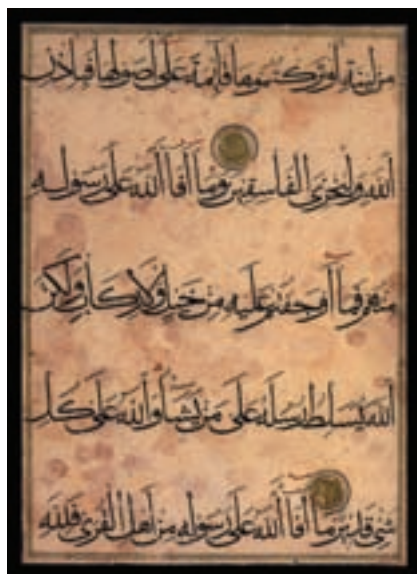 من لينة أو تركتموها قائمة على أصولها فبإذن
الله وليخزي الفاسقين وما أفا الله على رسوله
منهم فما أوجفتم عليه من خيل ولا ركاب ولكن
الله يسلط رسله على من يشا والله على كل
شي قدير ما أفا الله على رسوله من أهل القرى فلله